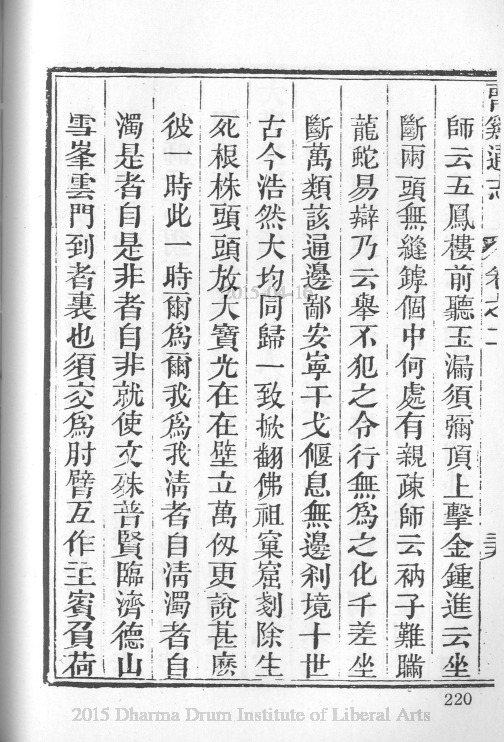 師云五鳳樓前聽玉漏須彌頂上擊金鍾進云坐
斷兩頭無縫鎼個中何處有親疎師云衲子難瞞
龍蛇易辯乃云舉不犯之令行無爲之化千差坐
斷萬類該通邊鄙安寧干戈偃息無邊刹境十世
古今浩然大均同歸一致掀翻佛祖窠窟剗除生
死根株頭頭放大寶光在在壁立萬仞更說甚麽
彼一時此一時爾爲爾我爲我清者自清濁者自
濁是者自是非者自非就使文殊普賢臨濟德山
雪峯雲門到者裏也須交爲肘臂互作主賓負荷
220
2015 Dharma Drum Institute of Liberal Arts